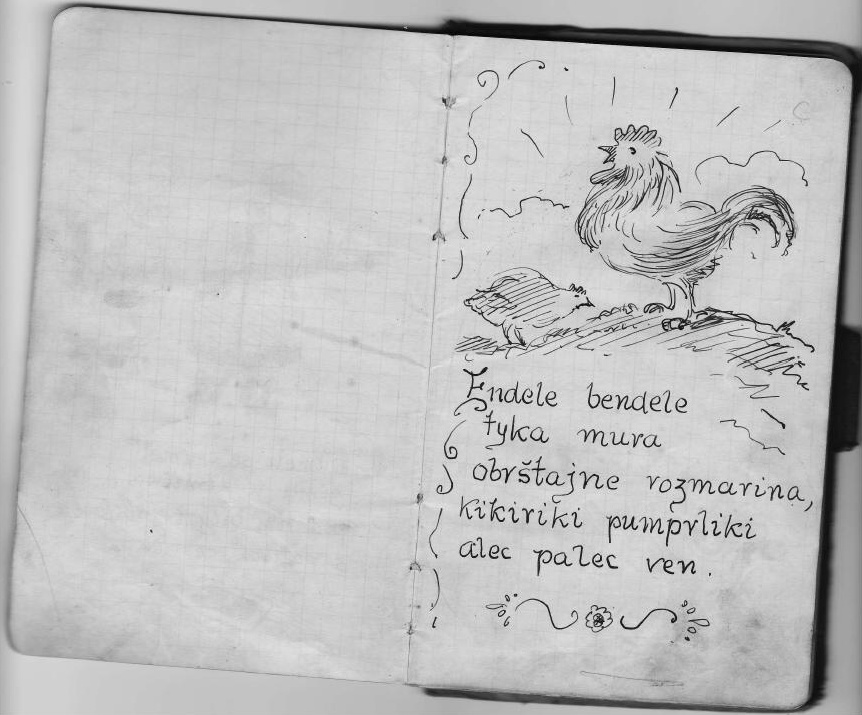 Endele bendele
tyka mura
obrštajne rozmarina,
kikiriki pumprliki
alec palec ven.